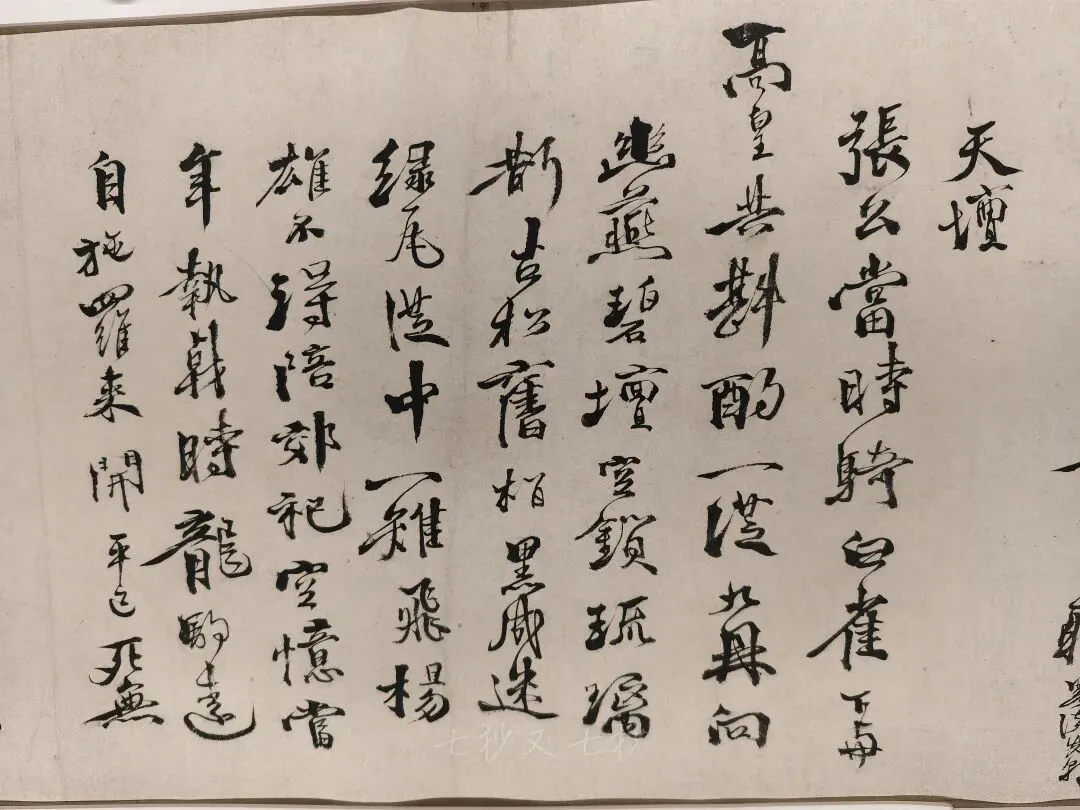 天壇
張公當時騎白雀下與
高皇共斟酌一從九鼎向
幽燕碧壇空鎖琉璃
斷古松舊柏黑成迷
綠瓦從中一雉飛楊
雄不得陪郊祀空憶當
年執戟時龍駒遠
自施羅來開平已死無
七秒又七秒